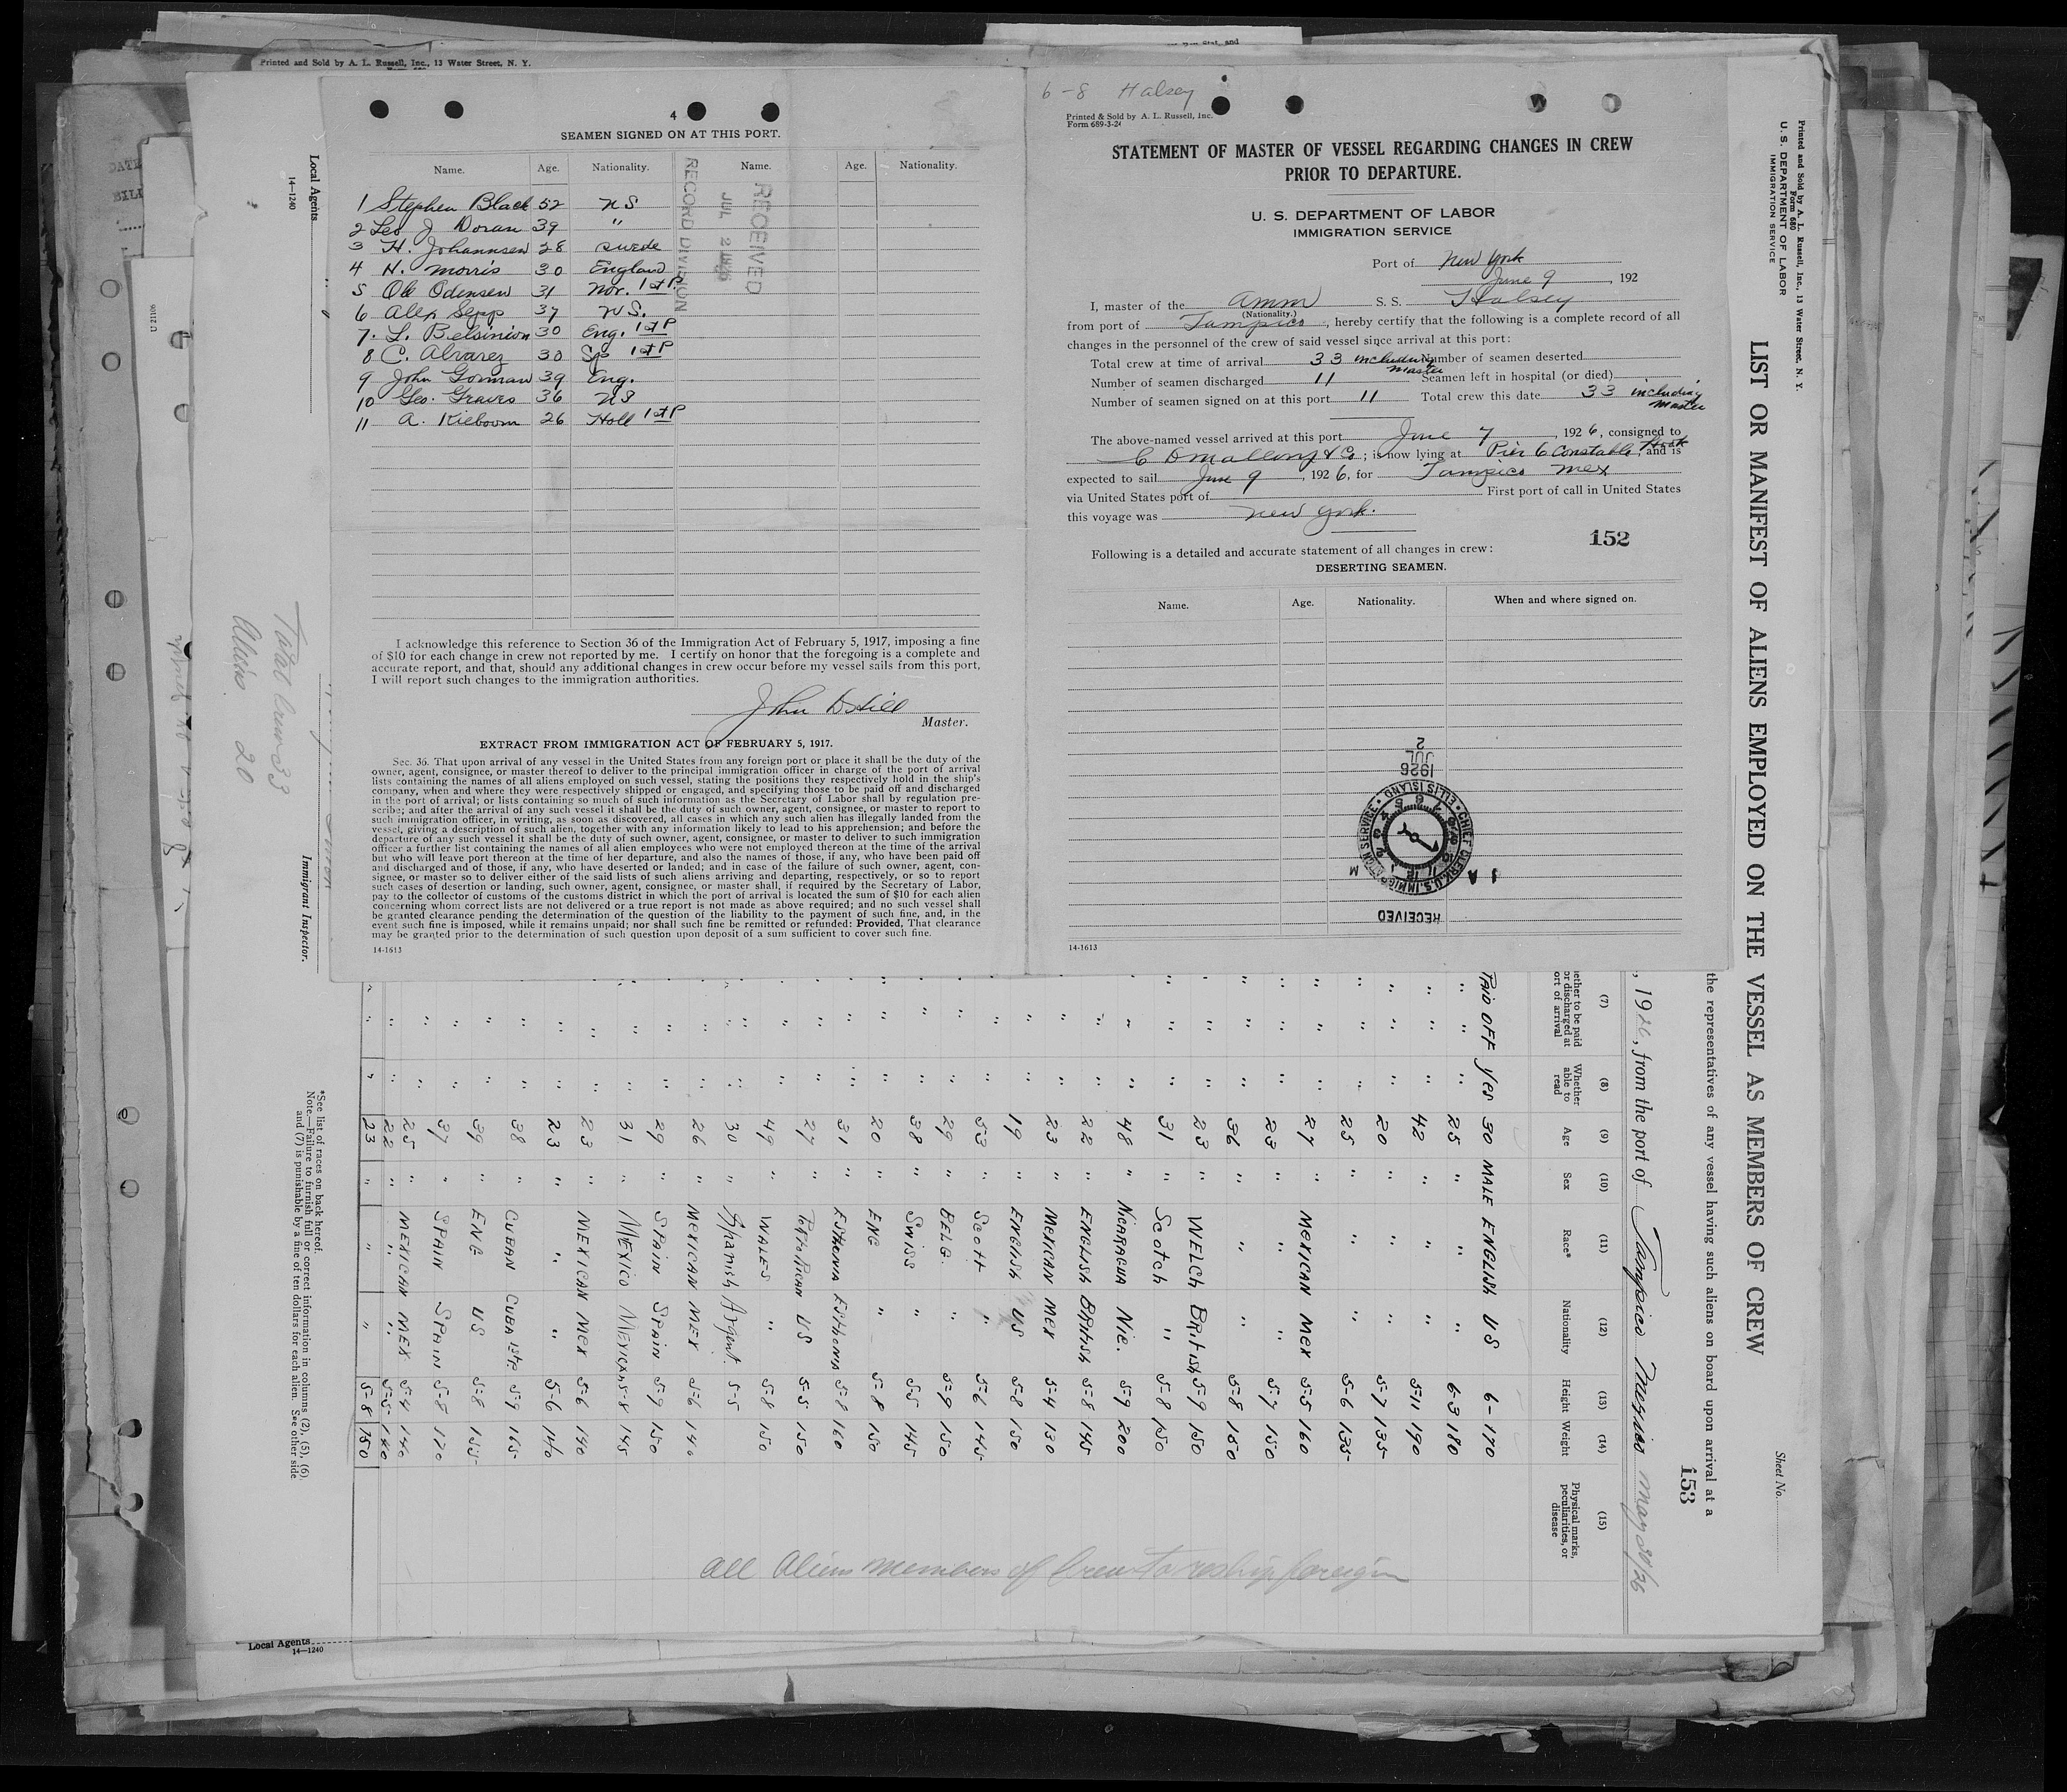 Printed and Sold by A. L. Russell, Inc., 13 Water Street, N. Y.
4
SEAMEN SIGNED ON AT THIS PORT.
Name. Age. Nationality. Name. Age. Nationality.
1 Stephen Black 52 US
2 Leo J Doran 39 "
3 H. Johannsen 28 Swede
4 H. Morris 30 England
5 Ole Odensen 31 Nor. 1st P.
6 Alex Sepp 37 US.
7. L. Belsinion 30 Eng. 1st P
8 C. Alvarez 30 Sp 1st P
9 John Gorman 39 Eng.
10 Geo. Graves 36 US
11 A. Kieboom 26 Holl 1st P
RECEIVED
JUL 2 1926
RECORD DIVISION
I acknowledge this reference to Section 36 of the Immigration Act of February 5, 1917, imposing a fine
of $10 for each change in crew not reported by me. I certify on honor that the foregoing is a complete and
accurate report, and that, should any additional changes in crew occur before my vessel sails from this port,
I will report such changes to the immigration authorities.
John D Hill
Master.
EXTRACT FROM IMMIGRATION ACT OF FEBRUARY 5, 1917.
Sec. 36. That upon arrival of any vessel in the United States from any foreign port or place it shall be the duty of the
owner, agent, consignee, or master thereof to deliver to the principal immigration officer in charge of the port of arrival
lists containing the names of all aliens employed on such vessel, stating the positions they respectively hold in the ship's
company, when and where they were respectively shipped or engaged, and specifying those to be paid off and discharged
in the port of arrival; or lists containing so much of such information as the Secretary of Labor shall by regulation pre-
scribe; and after the arrival of any such vessel it shall be the duty of such owner, agent, consignee, or master to report to
such immigration officer, in writing, as soon as discovered, all cases in which any such alien has illegally landed from the
vessel, giving a description of such alien, together with any information likely to lead to his apprehension; and before the
departure of any such vessel it shall be the duty of such owner, agent, consignee, or master to deliver to such immigration
officer a further list containing the names of all alien employees who were not employed thereon at the time of the arrival
but who will leave port thereon at the time of her departure, and also the names of those, if any, who have been paid off
and discharged and of those, if any, who have deserted or landed; and in case of the failure of such owner, agent, con-
signee, or master so to deliver either of the said lists of such aliens arriving and departing, respectively, or so to report
such cases of desertion or landing, such owner, agent, consignee, or master shall, if required by the Secretary of Labor,
pay to the collector of customs of the customs district in which the port of arrival is located the sum of $10 for each alien
concerning whom correct lists are not delivered or a true report is not made as above required; and no such vessel shall
be granted clearance pending the determination of the question of the liability to the payment of such fine, and, in the
event such fine is imposed, while it remains unpaid; nor shall such fine be remitted or refunded: Provided, That clearance
may be granted prior to the determination of such question upon deposit of a sum sufficient to cover such fine.
14-1613
6-8 Halsey
Printed & Sold by A. L. Russell, Inc.
Form 689-3-24
STATEMENT OF MASTER OF VESSEL REGARDING CHANGES IN CREW
PRIOR TO DEPARTURE.
U. S. DEPARTMENT OF LABOR
IMMIGRATION SERVICE
Port of New York
June 9, 192
I, master of the Amm S. S. Halsey
(Nationality.)
from port of Tampico, hereby certify that the following is a complete record of all
changes in the personnel of the crew of said vessel since arrival at this port:
Total crew at time of arrival 33 including Master Number of seamen deserted
Number of seamen discharged 11 Seamen left in hospital (or died)
Number of seamen signed on at this port 11 Total crew this date 33 including Master
The above-named vessel arrived at this port June 7, 1926, consigned to
C D Mallory & Co; is now lying at Pier 6 Constable Hook, and is
expected to sail June 9, 1926, for Tampico Mex
via United States port of First port of call in United States
this voyage was New York.
152
Following is a detailed and accurate statement of all changes in crew:
DESERTING SEAMEN.
Name. Age. Nationality. When and where signed on.
RECEIVED
CHIEF CLERK, U.S. IMMIGRATION SERVICE • ELLIS ISLAND •
1926 JUL 2
A M
14-1613
Printed and Sold by A. L. Russell, Inc., 13 Water Street, N. Y.
Form 680
U. S. DEPARTMENT OF LABOR
IMMIGRATION SERVICE
Sheet No.
LIST OR MANIFEST OF ALIENS EMPLOYED ON THE VESSEL AS MEMBERS OF CREW
the representatives of any vessel having such aliens on board upon arrival at a
153
, 1926, from the port of Tampico Mexico May 30/26
(7) (8) (9) (10) (11) (12) (13) (14) (15)
Whether able to read Age Sex Race* Nationality Height Weight Physical marks, peculiarities, or disease
PAID OFF yes 30 MALE ENGLISH US 6- 170
" " 25 " " " 6-3 180
" " 42 " " " 5-11 190
" " 20 " " " 5-7 135
" " 25 " " " 5-6 135
" " 27 " MEXICAN MEX 5-5 160
" " 23 " " " 5-7 150
" " 36 " " " 5-8 150
" " 23 " WELCH British 5-9 150
" " 31 " Scotch " 5-8 150
" " 48 " NICARAGUA Nic. 5-9 200
" " 22 " ENGLISH British 5-8 145
" " 23 " MEXICAN MEX 5-4 130
" " 19 " ENGLISH US 5-8 150
" " 53 " Scott " 5-6 145
" " 29 " BELG. " 5-9 150
" " 38 " SWISS " 5-5 145
" " 20 " ENG " 5-8 150
" " 31 " ESTHONIA ESTHONIA 5-8 160
" " 27 " PortoRican US 5-5 150
" " 49 " WALES " 5-8 150
" " 30 " Spanish Argent. 5-5
" " 26 " MEXICAN MEX 5-6 140
" " 29 " SPAIN SPAIN 5-9 150
" " 31 " MEXICO MEXICAN 5-8 145
" " 23 " MEXICAN MEX 5-6 140
" " 23 " " " 5-6 140
" " 38 " CUBAN CUBA 1stp. 5-9 165
" " 39 " ENG US 5-8 155
" " 37 " SPAIN SPAIN 5-8 170
" " 25 " MEXICAN MEX 5-4 140
" " 22 " " " 5-5 140
" " 23 " " " 5-8 150
all Aliens members of Crew to reship foreign
Local Agents
14-1240
Total Crew 33
Aliens 20
Immigrant Inspector.
*See list of races on back hereof.
Note.—Failure to furnish full or correct information in columns (2), (5), (6)
and (7) is punishable by a fine of ten dollars for each alien. See other side
Local Agents
14-1240